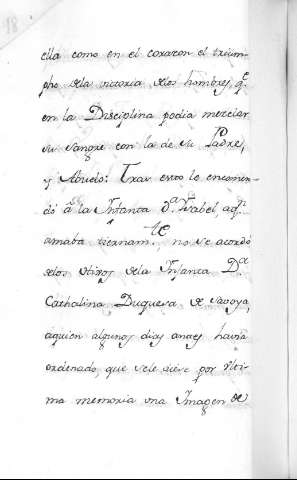 18
ella como en el corazon el trium-
pho dela victoria delos hombres, q.e
en la Disciplina podia mezclar
su sangre con la de su Padre,
y Abuelo: Tras esto le encomen-
dò à la Infanta D.a Ysabel, aq.n
amaba tiernam.te no se acordó
delos otros dela Infanta D.a
Cathalina Duquesa de Savoya,
aquien algunos dias antes havia
ordenado, que sele diese por ulti-
ma memoria una Imagen de